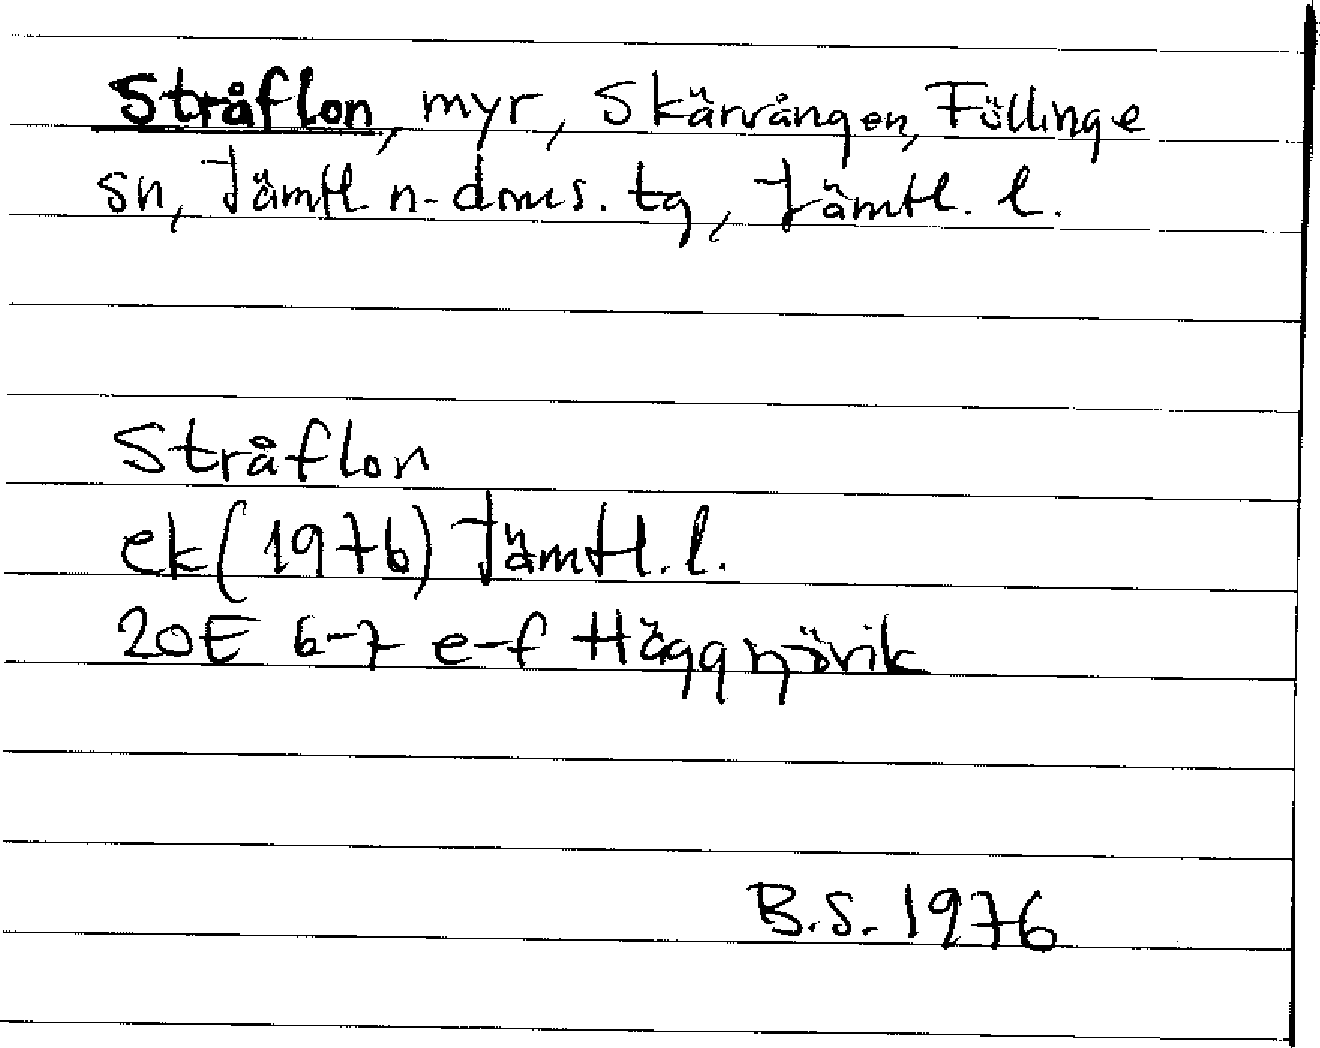 Stråflon, myr, Skärvången, Föllinge
sn, Jämtl. n. doms. tg, Jämtl. l.
Stråflon
ek (1976) Jämtl. l.
20E 6-7 e-f Häggnjörik
B.S. 1976